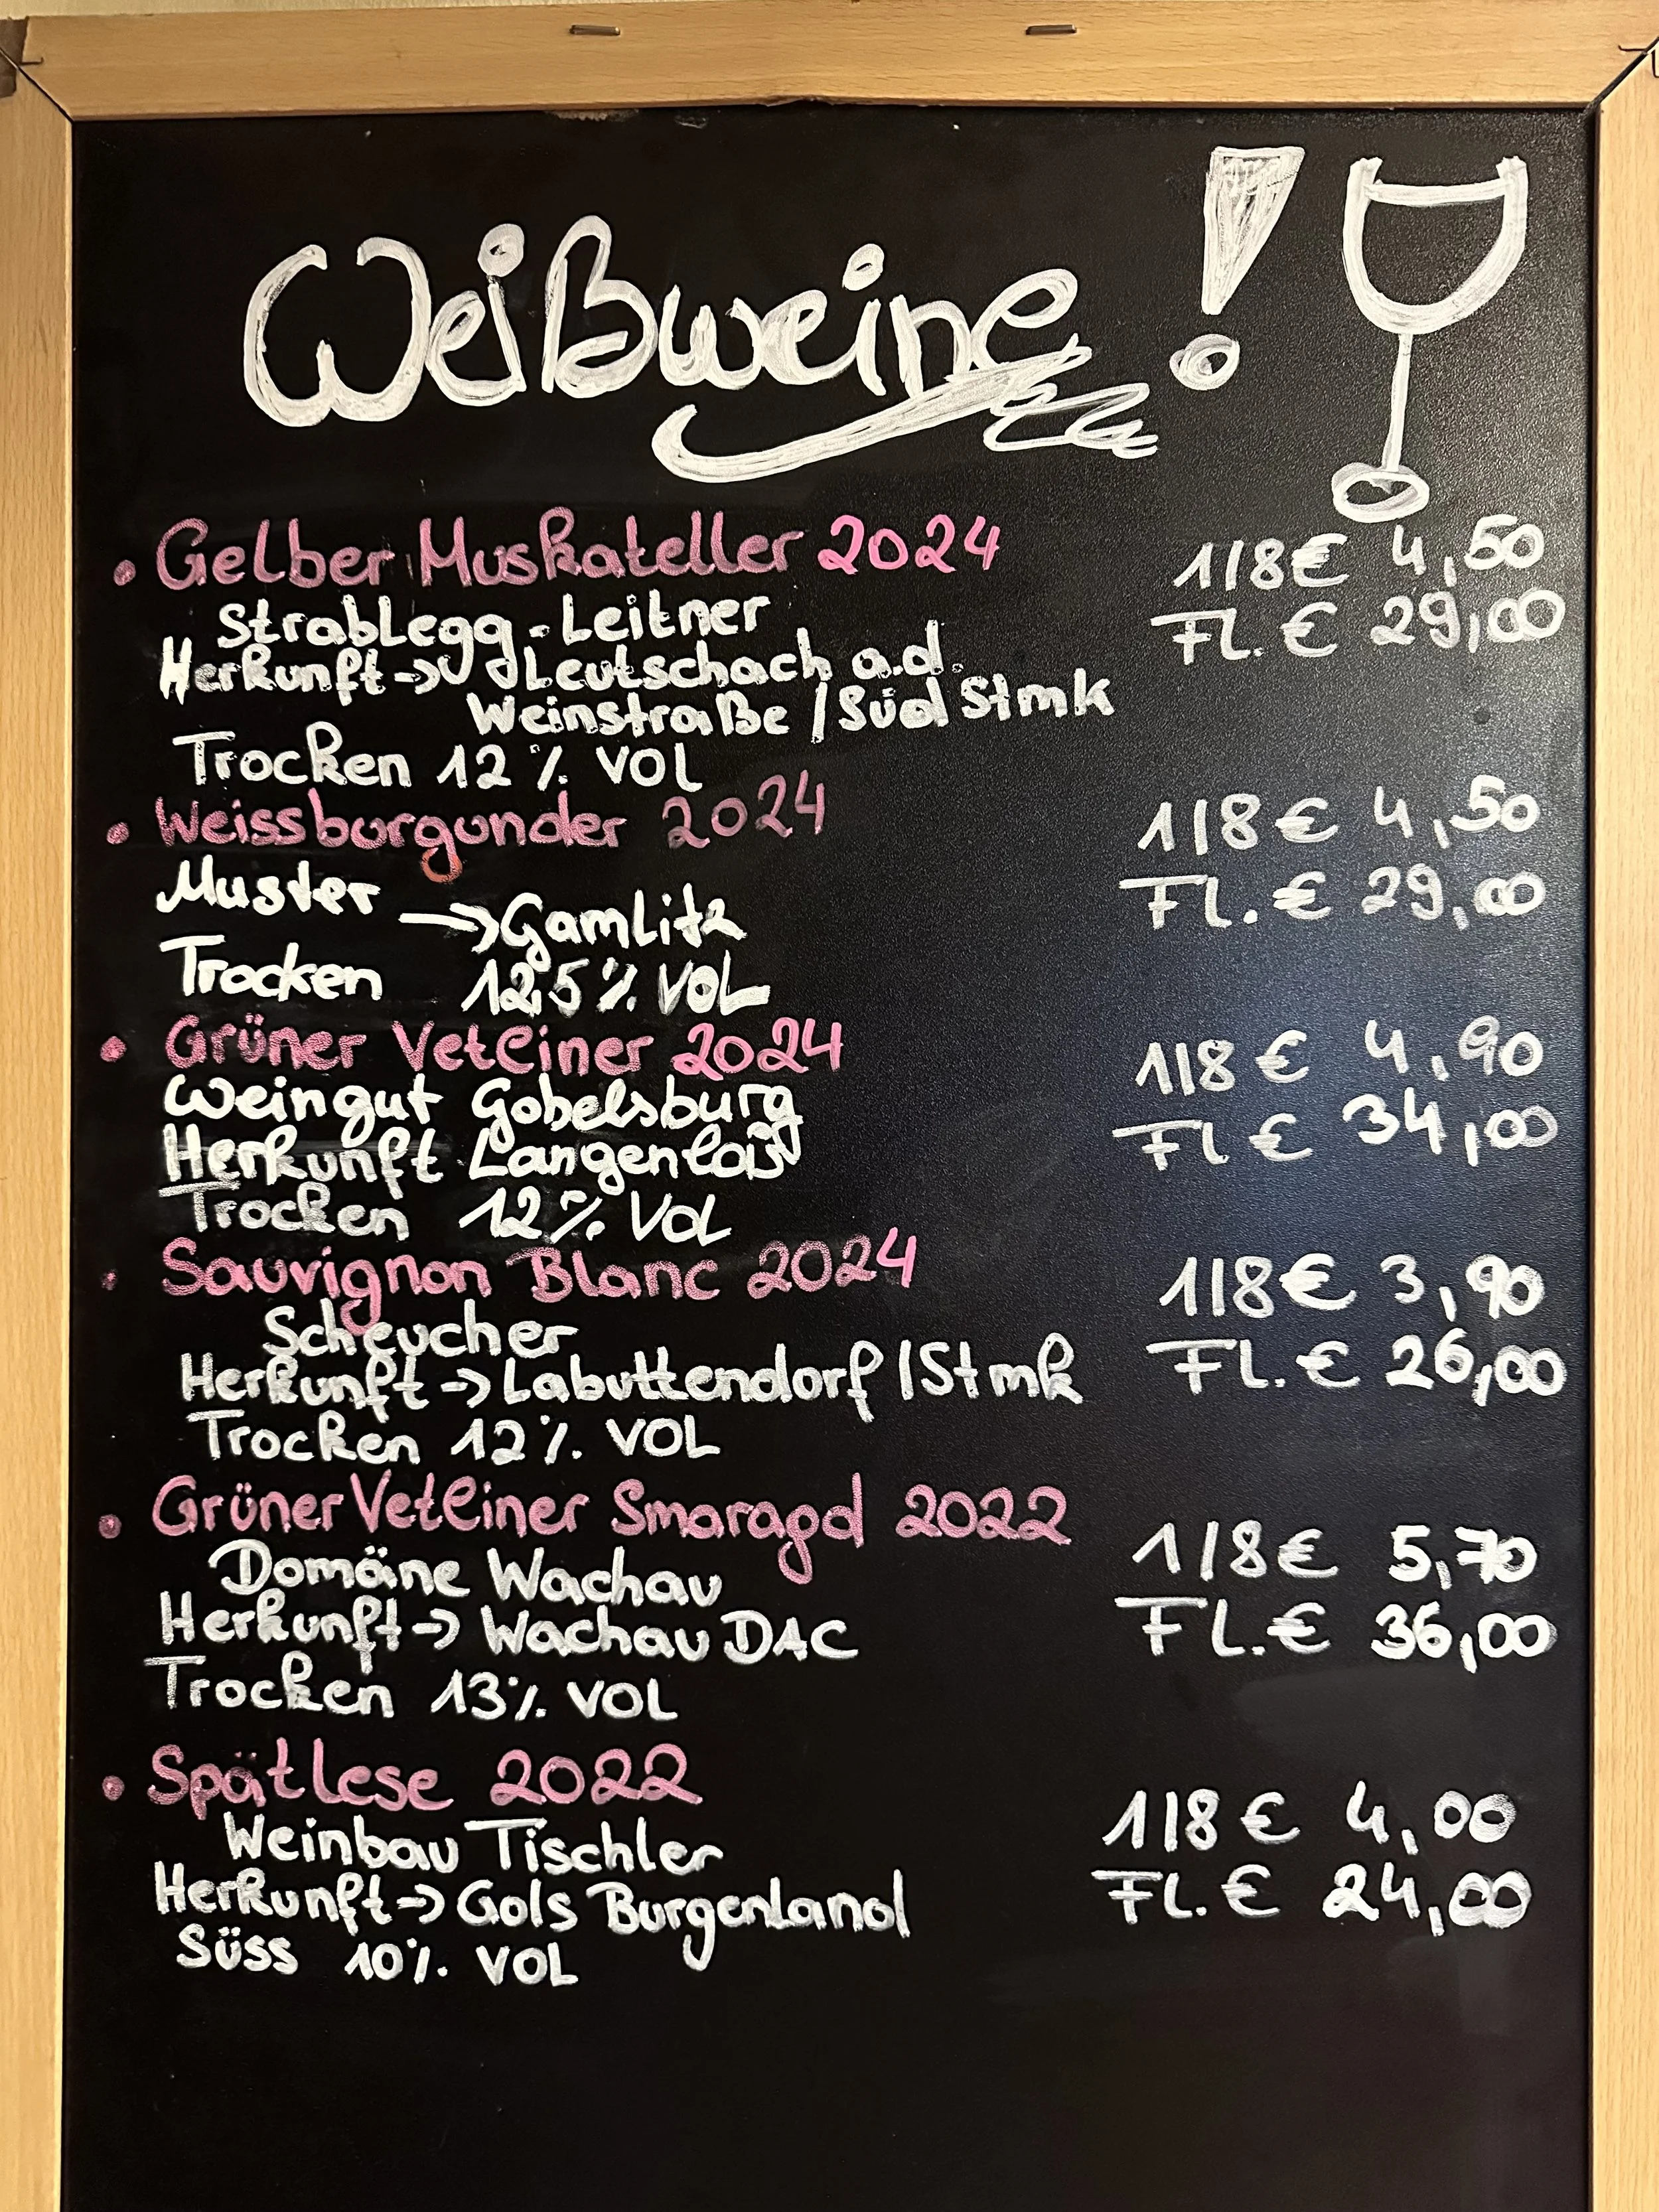 Weißweine!
• Gelber Muskateller 2024 1/8 € 4,50
Strablegg-Leitner Fl. € 29,00
Herkunft → Leutschach a.d.
Weinstraße / Süd Stmk
Trocken 12% VOL
• Weissburgunder 2024 1/8 € 4,50
Muster → Gamlitz Fl. € 29,00
Trocken 12,5% VOL
• Grüner Vetliner 2024 1/8 € 4,90
Weingut Gobelsburg Fl € 34,00
Herkunft Langenlois
Trocken 12% VOL
• Sauvignon Blanc 2024 1/8 € 3,90
Scheucher Fl. € 26,00
Herkunft → Labuttendorf / Stmk
Trocken 12% VOL
• Grüner Vetliner Smaragd 2022 1/8 € 5,70
Domäne Wachau Fl. € 36,00
Herkunft → Wachau DAC
Trocken 13% VOL
• Spätlese 2022 1/8 € 4,00
Weinbau Tischler Fl. € 24,00
Herkunft → Gols Burgenland
Süss 10% VOL